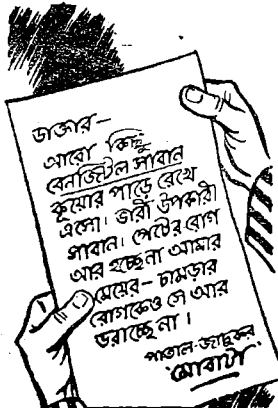 ডাক্তার—
আরো কিছু
বেনজিটল সাবান
কূয়োর পাড়ে রেখে
এসো। ভারী উপকারী
সাবান। পেটের রোগ
আর হচ্ছেনা আমার
মেয়ের—চামড়ার
রোগকেও সে আর
ডরাচ্ছেনা।
পাতাল-জাদুকর
'মোবাটা'